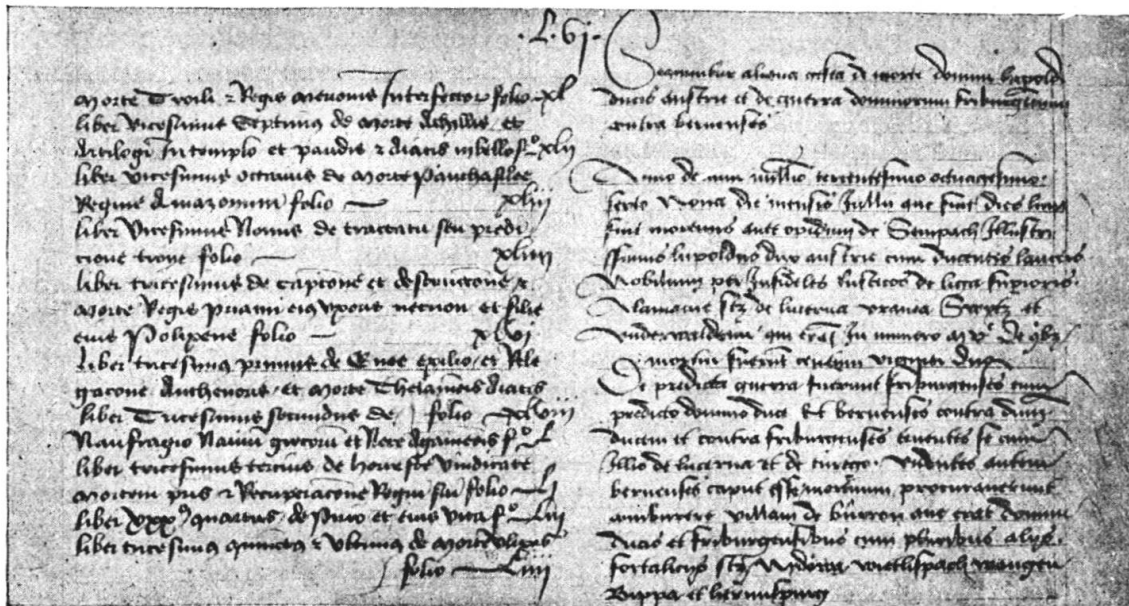 .L.VI.
Morte Troili et Regis Menonis Interfector folio xl
liber vicesimus septimus de Morte Achillis et
in templo et et in bello fo xlii
liber vicesimus octavus de Morte
Regine Amazonum folio xliii
liber vicesimus Nonus de tractatu seu predi
cione troye folio xliiii
liber tricesimus de captione et destructione et
Morte Regis Priami eius uxoris necnon et filie
eius Polixene folio xlvi
liber tricesimus primus de Enee exilio et Rele
gacone Anthenoris et Morte
liber Tricesimus secundus de folio xlviii
Naufragio Navium grecorum et Nece fo L
liber tricesimus tercius de horreste vindicate
Mortem pris et Recuperacone Regni sui folio Li
liber xxx quartus de Pirro et eius vita fo Lii
liber tricesimus quintus et ultimus de Morte ulixis
folio Liiii
Secuntur aliqua gesta de morte domini lupoldi
ducis austrie et de guerra dominorum friburgensium
contra bernenses
Anno domini millesimo tercentesimo octuagesimo
sexto Nona die mensis Jullii que fuit dies lune
fuit mortuus ante opidum de Sempach Illustri
ssimus lupoldus dux austrie cum ducentis lanceis
Nobilium per Infideles rusticos de liga superioris
Alamanie scz de lucerna urania Swytz et
underwalden qui erant In numero de qbz
mortui fuerunt centum viginti duo
De predicta guerra fuerunt friburgenses cum
predicto domino duce Et bernenses contra dum
ducem et contra friburgenses tenentes se cum
Illis de lucerna et de turego. videntes autem
bernenses caput esse mortuum procuraverunt
amburere villam de burron que erat domini
ducis et friburgensibus cum pluribus aliis
fortaliciis scz Nydowa wietlispach wangen
Bippa et